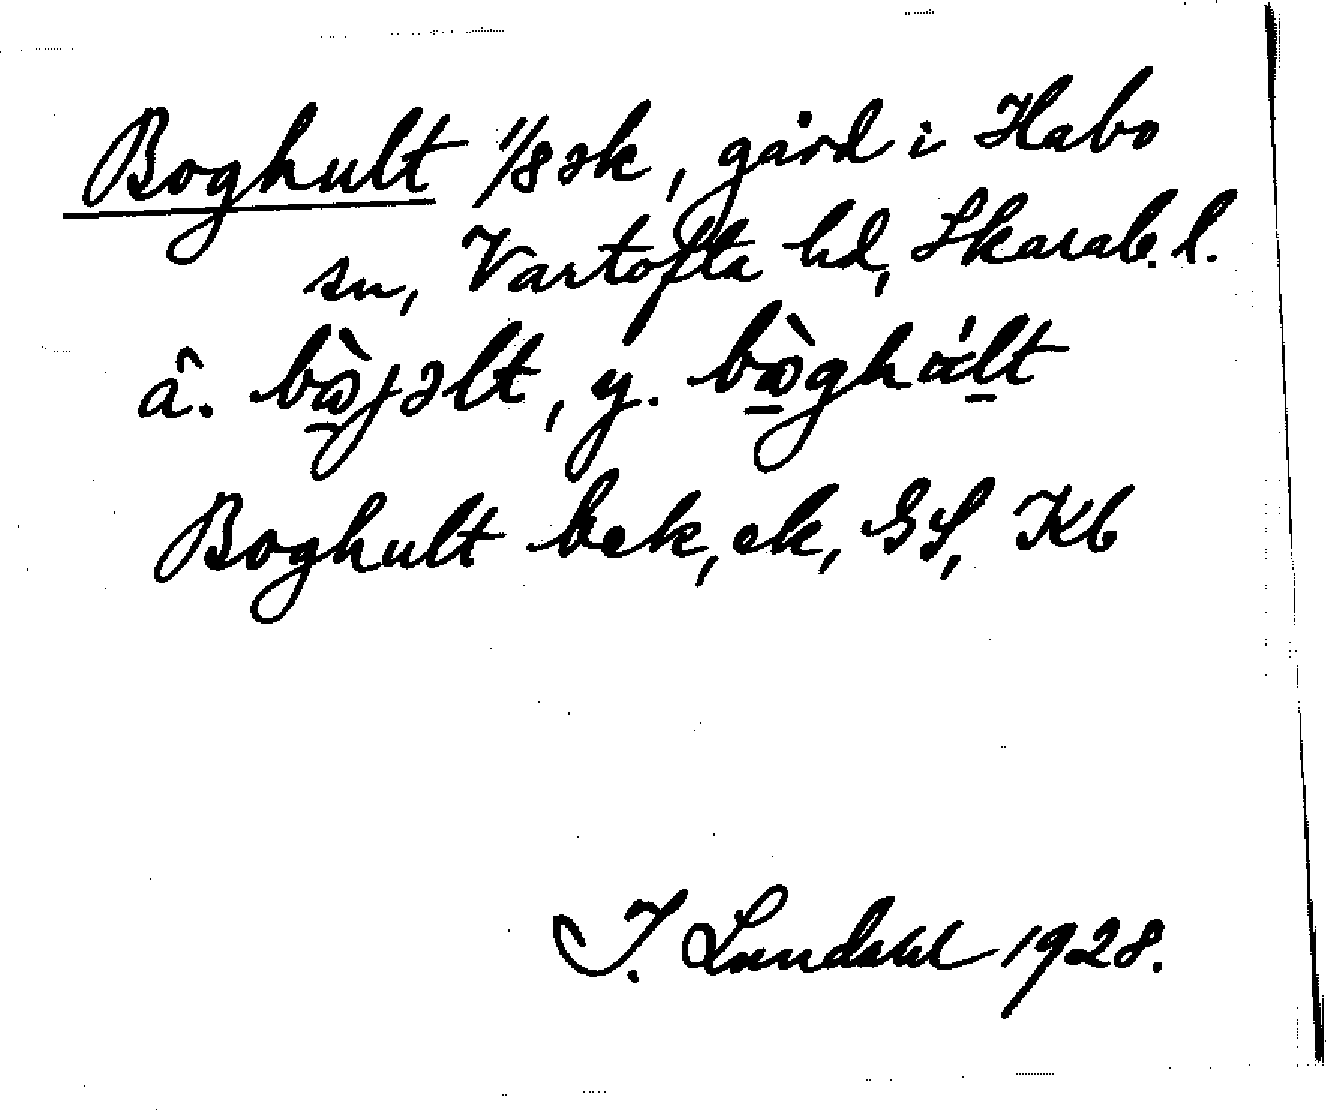 Boghult 1/8 sk, gård i Habo
sn, Vartofta hd, Skarab. l.
â. bò̱jəlt, y. bò̱ghál̲t
Boghult bek, ek, GS, Kb
I. Lundahl 1928.